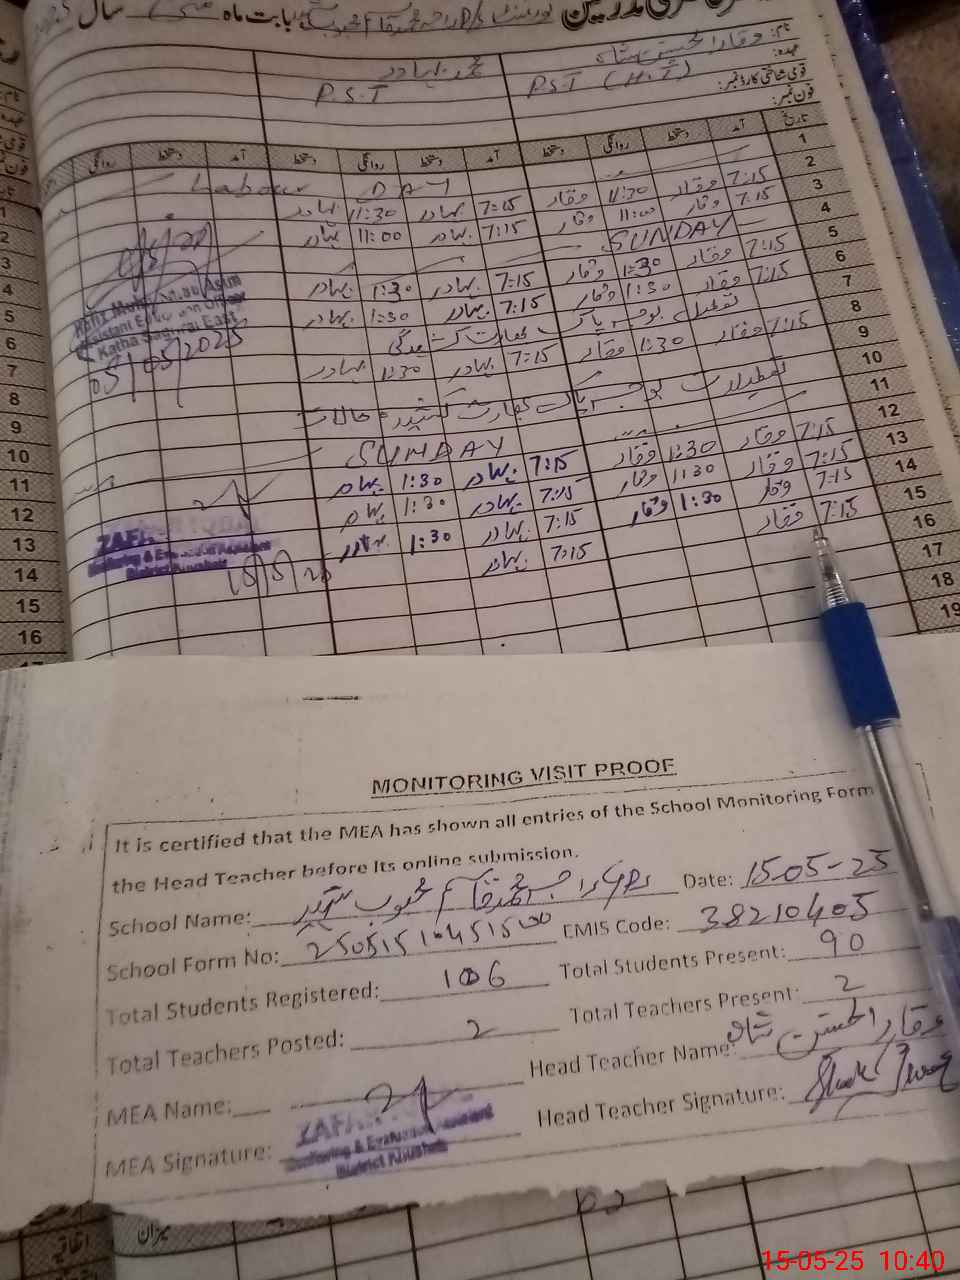 بابت ماہ مئی سال
نام: وقار الحسن شاہ
عہدہ: P.S.T (H.T) P.S.T
قومی شناختی کارڈ نمبر:
فون نمبر:
تاریخ آمد دستخط روانگی دستخط آمد دستخط روانگی دستخط آمد دستخط روانگی
1 Labour DAY
2 7:15 وقار 11:30 وقار 7:15 بہادر 11:30 بہادر
3 7:15 وقار 11:00 وقار 7:15 بہادر 11:00 بہادر
4 SUNDAY
5 7:15 وقار 1:30 وقار 7:15 بہادر 1:30 بہادر
6 7:15 وقار 1:30 وقار 7:15 بہادر 1:30 بہادر
7 تعطیل بوجہ پاک بھارت کشیدگی
8 7:15 وقار 1:30 وقار 7:15 بہادر 1:30 بہادر
9 تعطیلات بوجہ پاک بھارت کشیدہ حالات
10
11 SUNDAY
12 7:15 وقار 1:30 وقار 7:15 بہادر 1:30 بہادر
13 7:15 وقار 1:30 وقار 7:15 بہادر 1:30 بہادر
14 7:15 وقار 1:30 وقار 7:15 بہادر 1:30 بہادر
15 7:15 وقار 7:15 بہادر
16
17
18
19
Katha Saghral East
05/05/2025
Monitoring & Evaluation Assistant
District Khushab
15/5/25
MONITORING VISIT PROOF
It is certified that the MEA has shown all entries of the School Monitoring Form
the Head Teacher before Its online submission.
School Name: GPS راجہ محمد قاسم محبوب شہید Date: 15-05-25
School Form No: 25051510451500 EMIS Code: 38210405
Total Students Registered: 106 Total Students Present: 90
Total Teachers Posted: 2 Total Teachers Present: 2
MEA Name: Head Teacher Name: وقار الحسن شاہ
MEA Signature: Head Teacher Signature:
Monitoring & Evaluation Assistant
District Khushab
میزان
اتفاقیہ
15-05-25 10:40